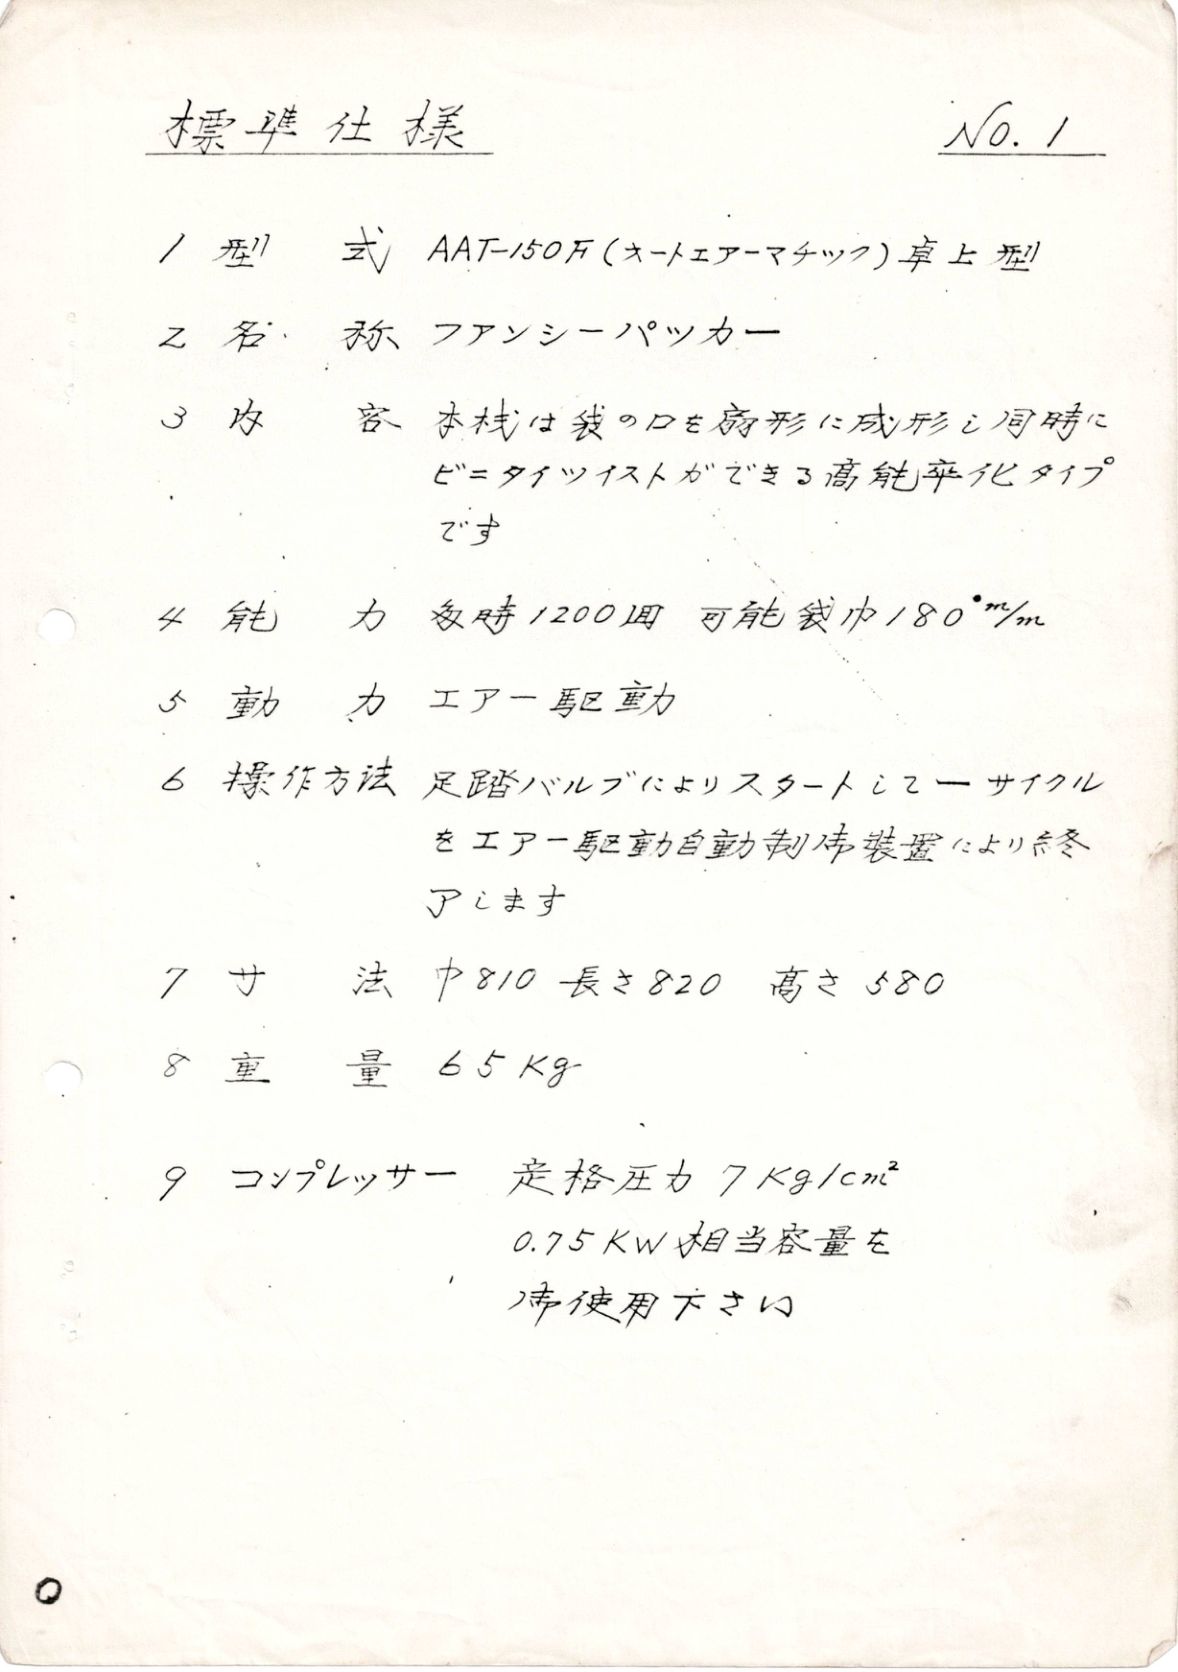 標準仕様 No.1
1 型式 AAT-150F(オートエアーマチック)卓上型
2 名称 ファンシーパッカー
3 内容 本桟は袋の口を扇形に成形し同時に
ビニタイツイストができる高能率化タイプ
です
4 能力 毎時1200回 可能袋巾180m/m
5 動力 エアー駆動
6 操作方法 足踏バルブによりスタートして一サイクル
をエアー駆動自動制御装置により終
了します
7 寸法 巾810 長さ820 高さ580
8 重量 65Kg
9 コンプレッサー 定格圧力 7Kg/cm²
0.75KW相当容量を
御使用下さい